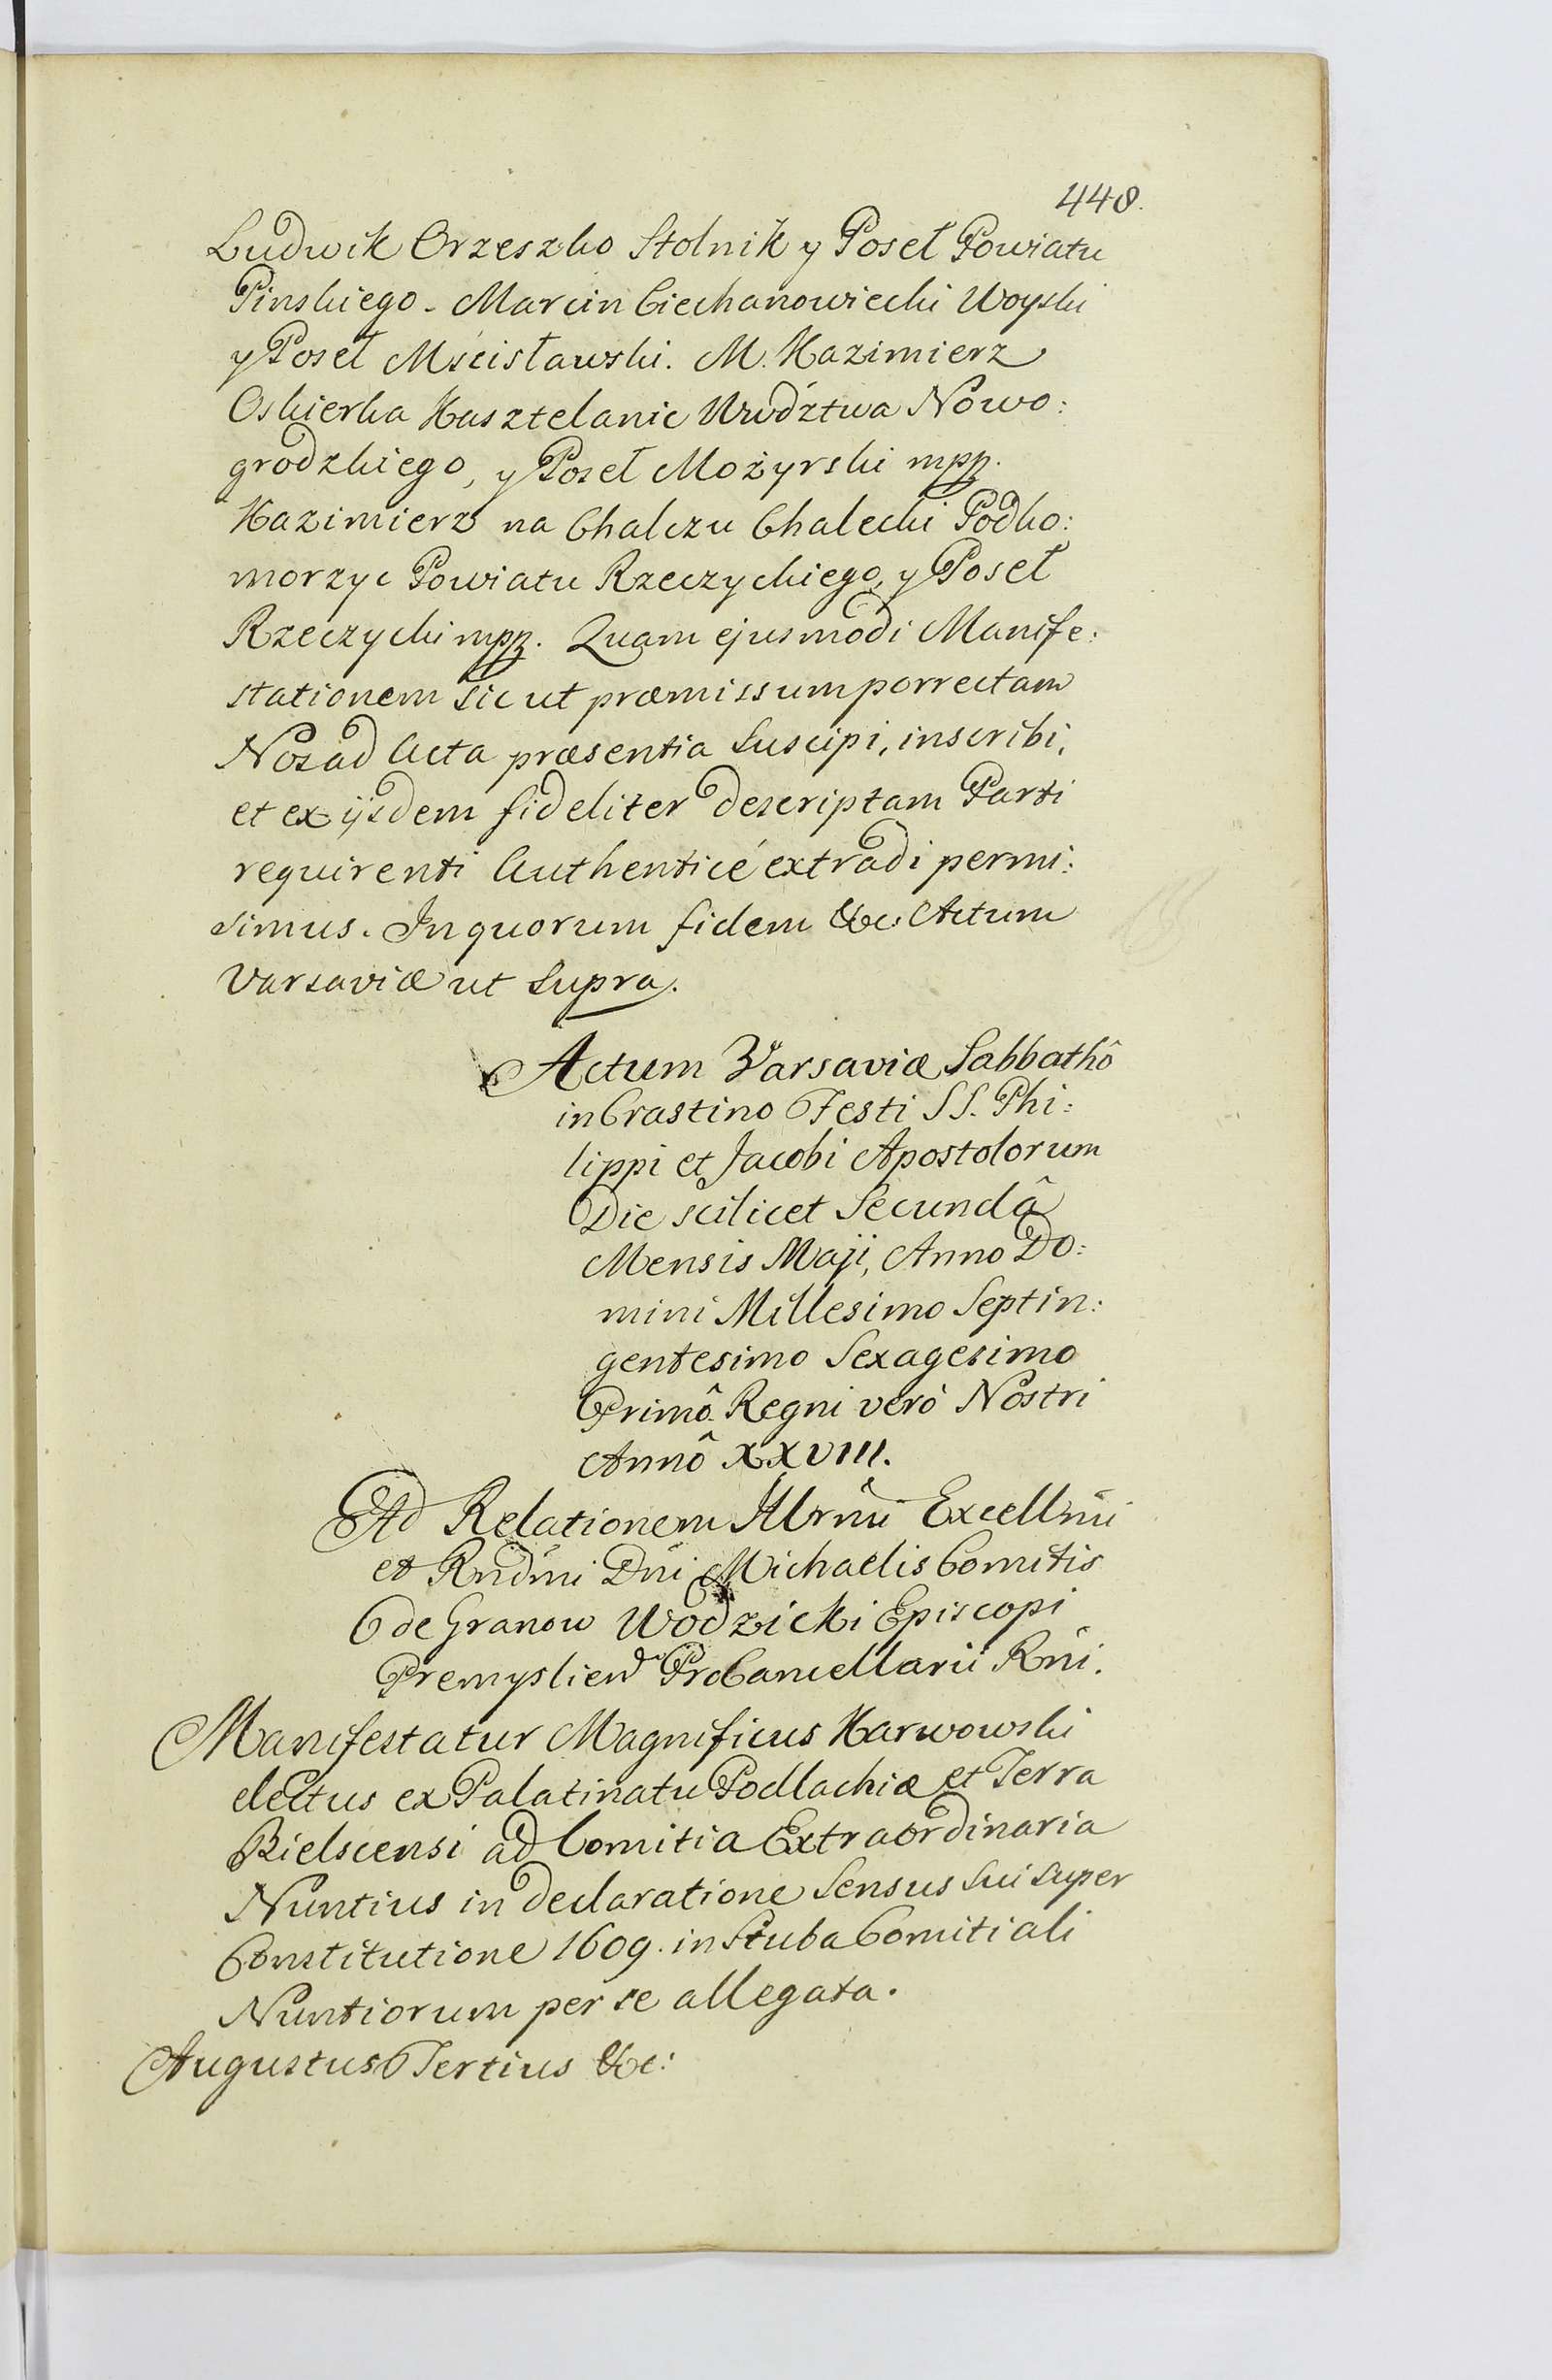 448.
Ludwik Orzeszko Stolnik y Poseł Powiatu
Pinskiego - Marcin Ciechanowiecki Woyski
y Poseł Mścisławski. M. Kazimierz
Oskierka Kasztelanic Wwdztwa Nowo:
grodzkiego, y Poseł Możyrski mpp.
Kazimierz na Chalczu Chalecki Podko:
morzyc Powiatu Rzeczyckiego, y Poseł
Rzeczycki mpp. Quam ejusmodi Manife:
stationem sic ut præmissum porrectam
Nos ad Acta præsentia Suscipi, inscribi,
et ex ijsdem fideliter descriptam Parti
requirenti Authenticé extradi permi:
simus. In quorum fidem &c: Actum
Varsaviæ ut Supra.
Actum Varsaviæ Sabbathô
in Crastino Festi SS. Phi:
lippi et Jacobi Apostolorum
Die scilicet Secundâ
Mensis Maji, Anno Do:
mini Millesimo Septin:
gentesimo Sexagesimo
Primô Regni verò Nostri
Annô XXVIII.
Ad Relationem Illrmi Excellmi
et Rndmi Dni Michaelis Comitis
de Granow Wodzicki Episcopi
Premyslien ProCancellarii Rni.
Manifestatur Magnificus Karwowski
electus ex Palatinatu Podlachiæ et Terra
Bielscensi ad Comitia Extraordinaria
Nuntius in declaratione Sensus Sui Super
Constitutione 1609. in Stuba Comitiali
Nuntiorum per se allegata.
Augustus Tertius &c: